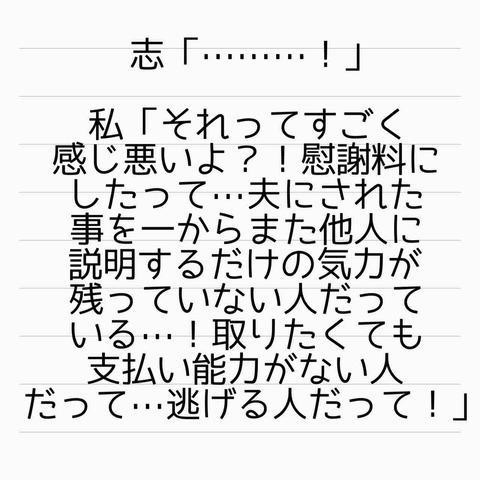 志「………！」
私「それってすごく
感じ悪いよ？！慰謝料に
したって…夫にされた
事を一からまた他人に
説明するだけの気力が
残っていない人だって
いる…！取りたくても
支払い能力がない人
だって…逃げる人だって！」